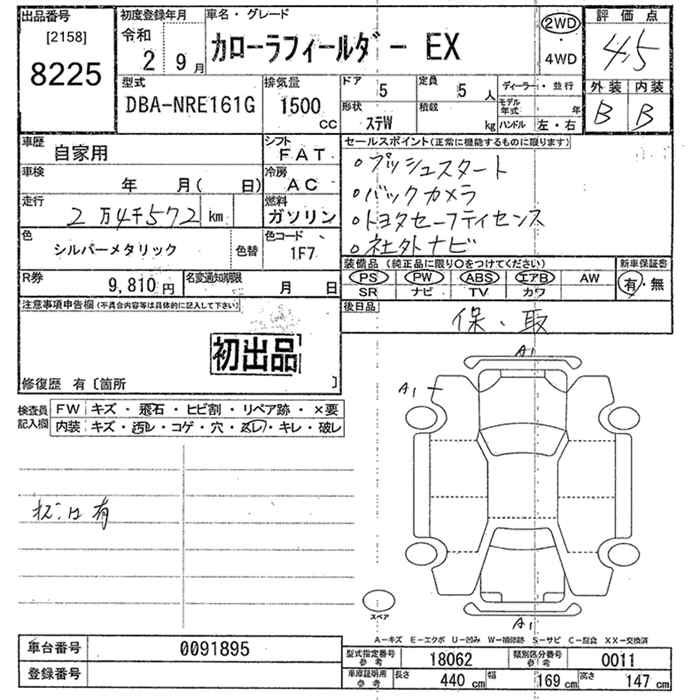 出品番号
[2158]
8225
初度登録年月
令和
2 9月
車名・グレード
カローラフィールダー EX
2WD
・
4WD
評価点
4.5
型式
DBA-NRE161G
排気量
1500
cc
ドア 5
定員 5 人
形状 ステW
積載 kg
ディーラー・並行
モデル年式 年
ハンドル 左・右
外装 内装
B B
車歴
自家用
シフト
FAT
車検
年 月( 日)
冷房
AC
走行
2万4千572 km
燃料
ガソリン
色
シルバーメタリック
色替
色コード
1F7
R券
9,810円
名変通知期限
月 日
セールスポイント(正常に機能するものに限ります)
○プッシュスタート
○バックカメラ
○トヨタセーフティセンス
○社外ナビ
装備品 (純正品に限り○をつけてください)
PS PW ABS エアB AW
SR ナビ TV カワ
新車保証書
有・無
後日品
保・取
注意事項申告欄(不具合内容等は具体的に記入して下さい)
初出品
修復歴 有〔箇所 〕
検査員
記入欄
FW キズ・飛石・ヒビ割・リペア跡・×要
内装 キズ・汚レ・コゲ・穴・ヌレ・キレ・破レ
A1
A1
A1
スペア
A-キズ E-エクボ U-凹み W-補修跡 S-サビ C-腐食 XX-交換済
車台番号
0091895
登録番号
型式指定番号
参考
18062
類別区分番号
参考
0011
車庫証明用
参考
長さ 440 cm 幅 169 cm 高さ 147 cm